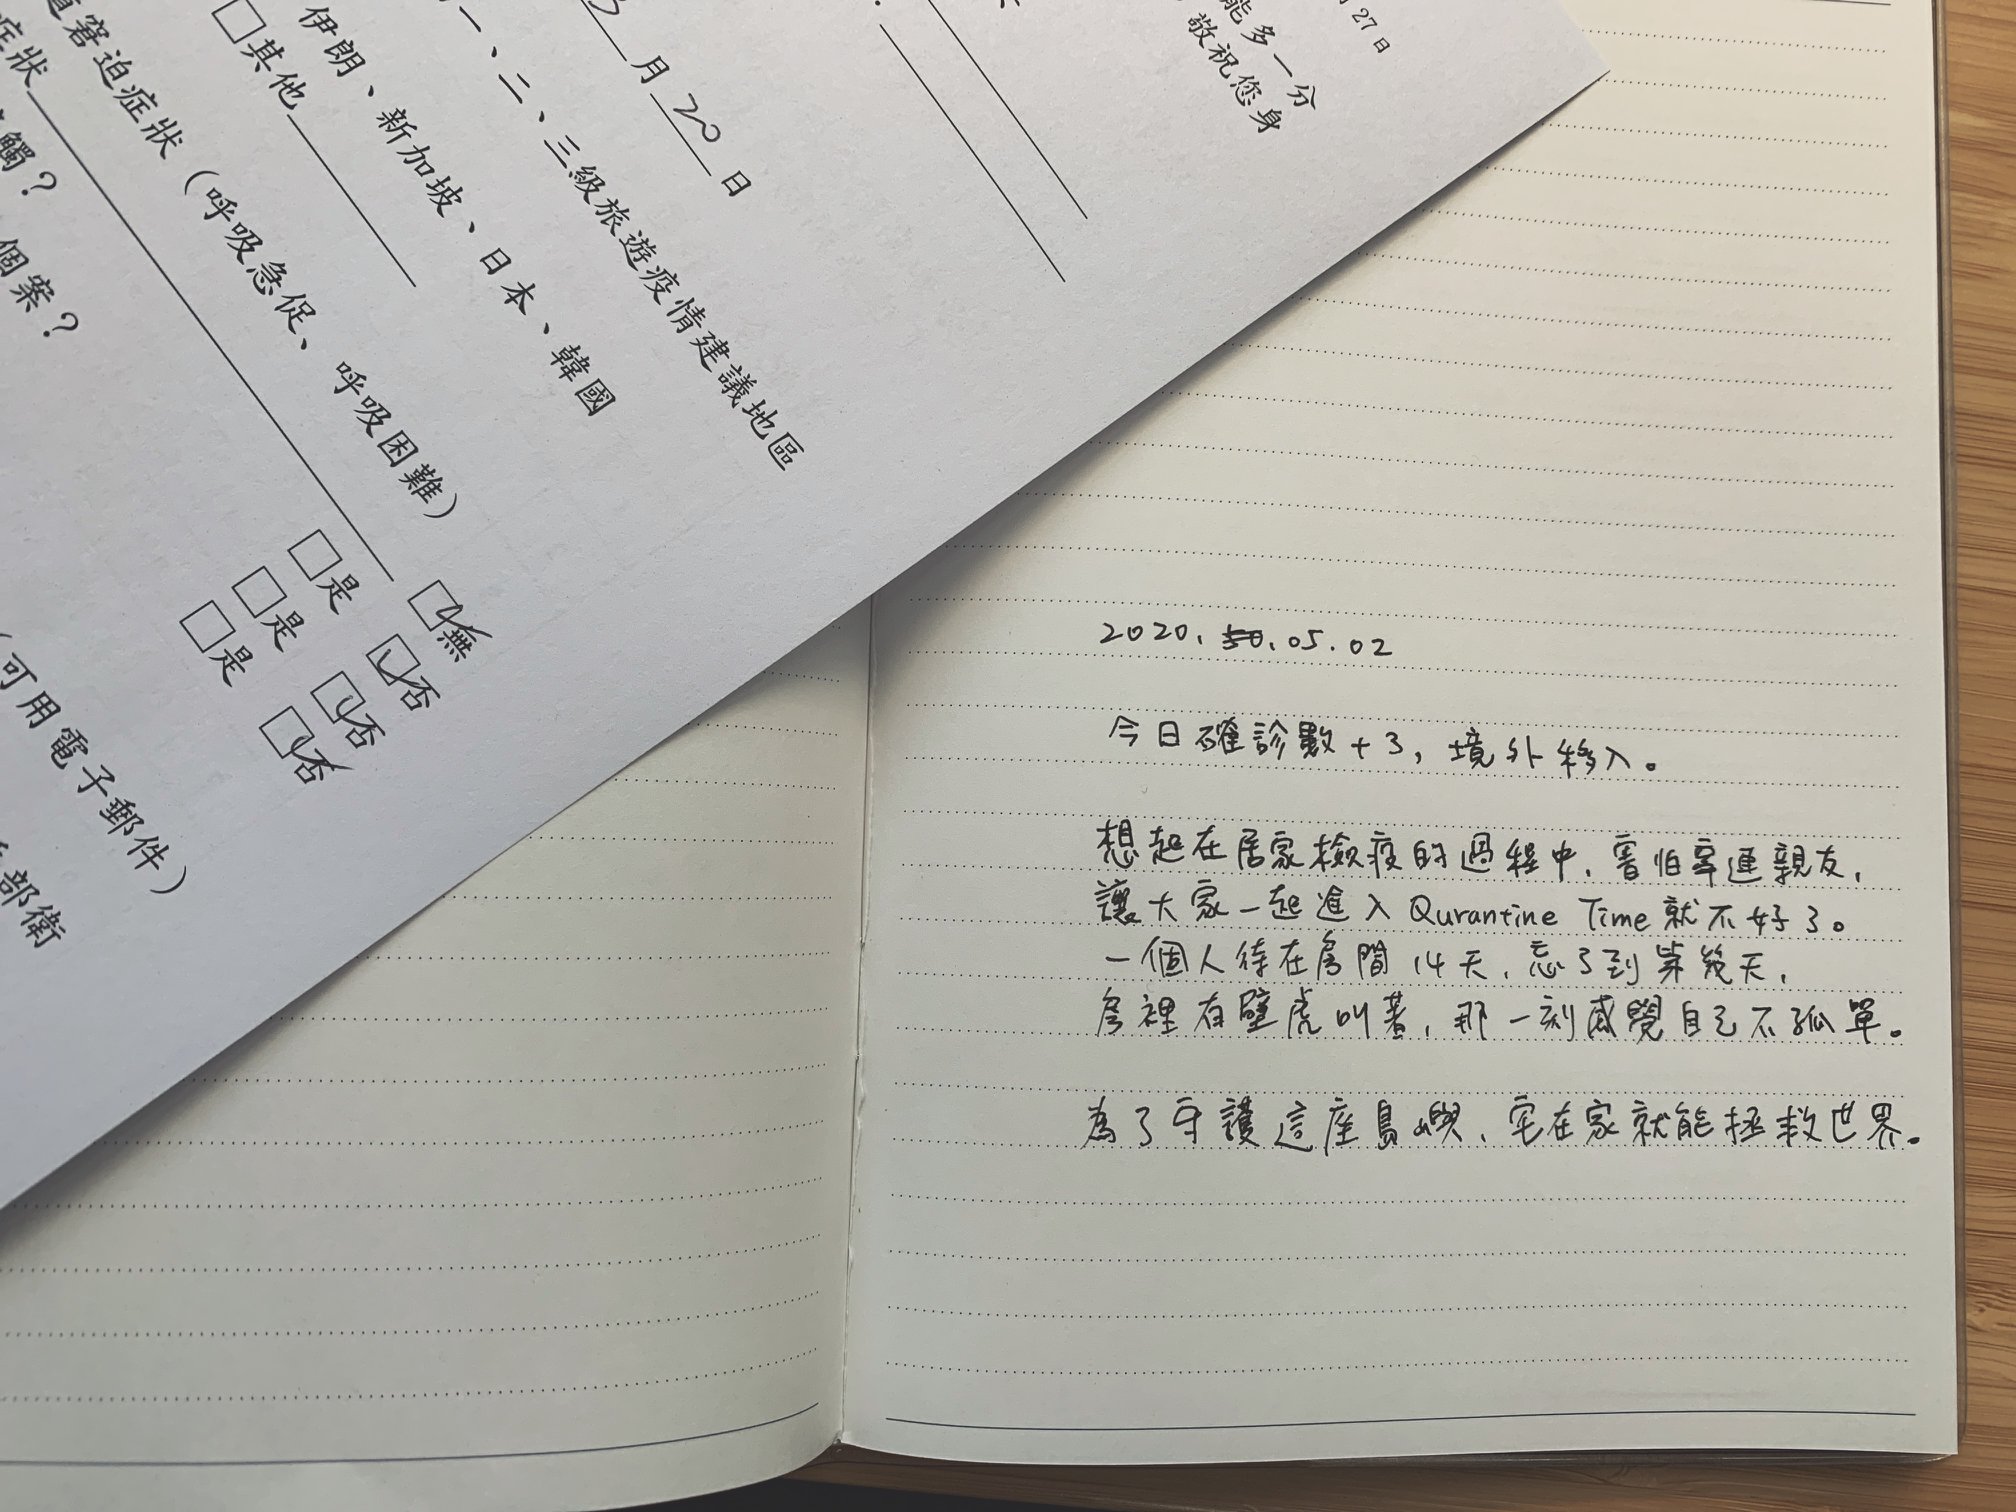 27日
能多一分
敬祝您身
月20日
一、二、三級旅遊疫情建議地區
伊朗、新加坡、日本、韓國
□其他
窘迫症狀（呼吸急促、呼吸困難）
症狀
無
觸？
□是 否
個案？
□是 否
□是 否
（可用電子郵件）
部衛
2020. .05.02
今日確診數+3,境外移入。
想起在居家檢疫的過程中,害怕牽連親友,
讓大家一起進入 Qurantine Time 就不好了。
一個人待在房間 14天,忘了到第幾天,
房裡有壁虎叫著,那一刻感覺自己不孤單。
為了守護這座島嶼、宅在家就能拯救世界。